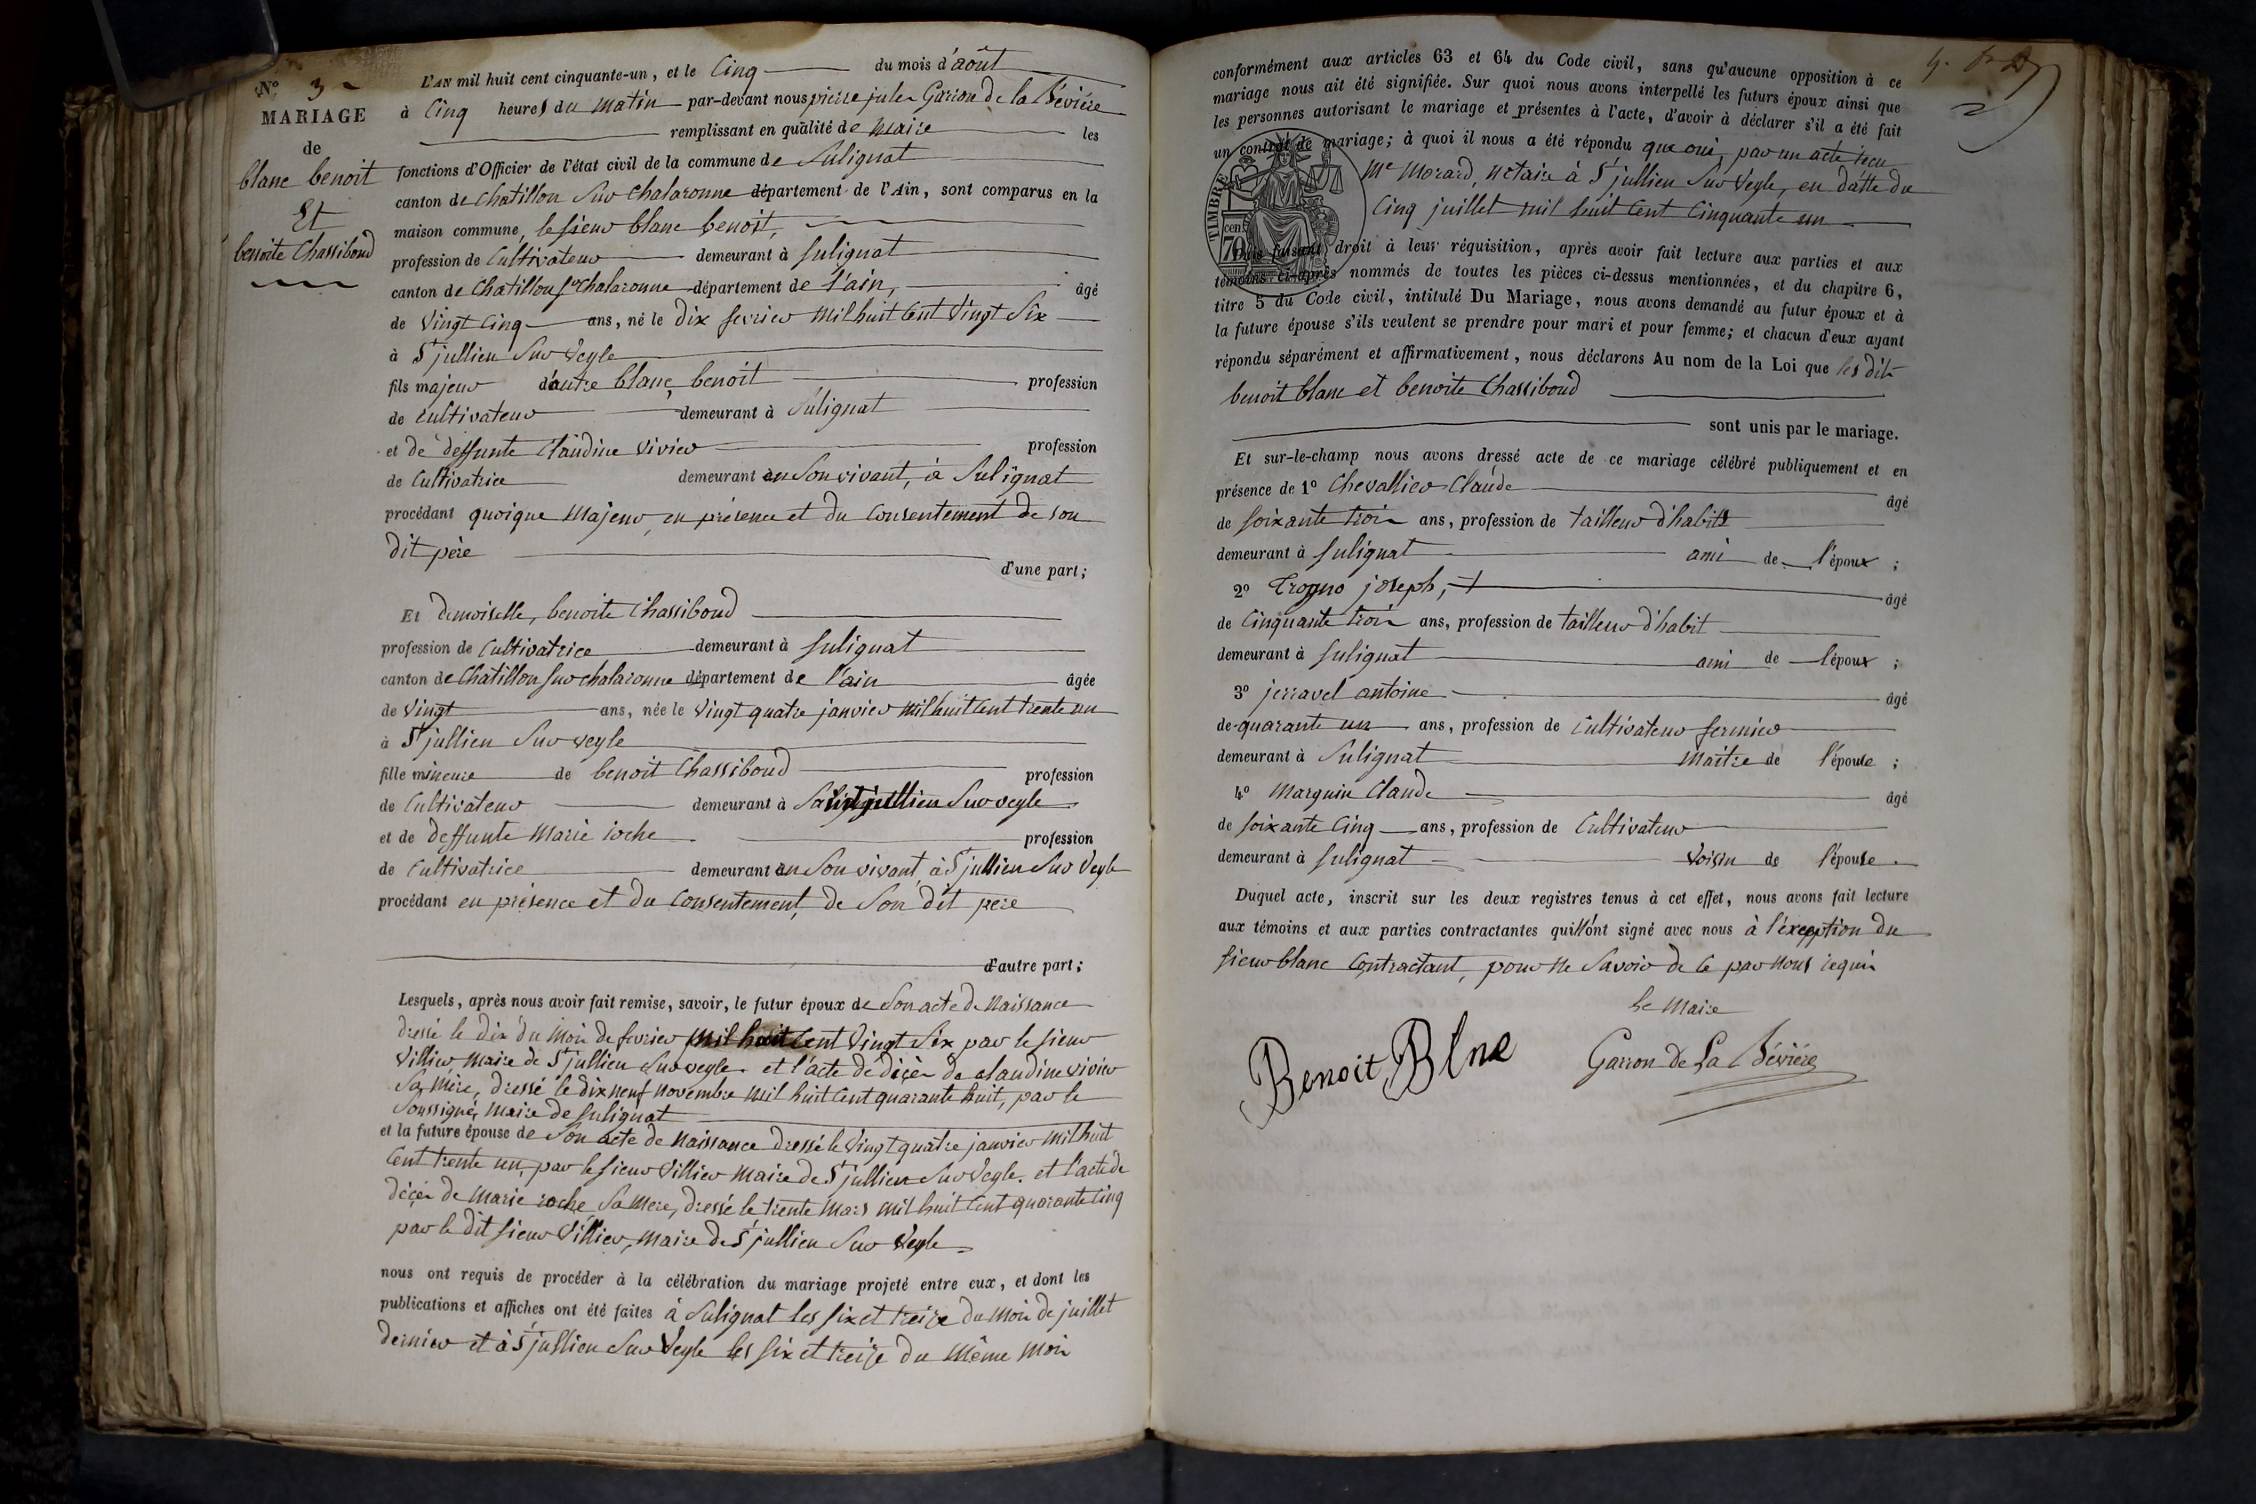 N° 3
MARIAGE
de
blanc benoit
Et
benoite Chassiboud
L'AN mil huit cent cinquante-un, et le Cinq du mois d'août
à Cinq heures du matin par-devant nous pierre jules Garron de la Bévière
remplissant en qualité de maire les
fonctions d'Officier de l'état civil de la commune de Sulignat
canton de Chatillon Sur Chalaronne département de l'Ain, sont comparus en la
maison commune, le sieur blanc benoit,
profession de Cultivateur demeurant à Sulignat
canton de Chatillon sr Chalaronne département de l'ain, âgé
de Vingt Cinq ans, né le dix fevrier mil huit Cent Vingt Six
à St jullien Sur Veyle
fils majeur d'autre blanc, benoit profession
de Cultivateur demeurant à Sulignat
et de deffunte Claudine Vivier profession
de Cultivatrice demeurant en Son vivant, à Sulignat
procédant quoique Majeur, en présence et du Consentement de son
dit père
d'une part;
Et demoiselle, benoite Chassiboud
profession de Cultivatrice demeurant à Sulignat
canton de Chatillon Sur Chalaronne département de l'ain âgée
de Vingt ans, née le Vingt quatre janvier mil huit Cent trente un
à St jullien Sur veyle
fille mineure de benoit Chassiboud profession
de Cultivateur demeurant à Saint jullien Sur veyle
et de deffunte Marie roche profession
de Cultivatrice demeurant en Son vivant, à St jullien Sur Veyle
procédant en présence et du Consentement, de Son dit pere
d'autre part;
Lesquels, après nous avoir fait remise, savoir, le futur époux de Son acte de Naissance
dressé le dix du mois de fevrier mil huit Cent Vingt Six par le sieur
Villier maire de St jullien Sur veyle et l'acte de décès de claudine vivier
Sa Mère, dressé le dix neuf Novembre mil huit Cent quarante huit, par le
Soussigné, maire de Sulignat
et la future épouse de Son acte de Naissance dressé le Vingt quatre janvier mil huit
Cent trente un, par le sieur Villier maire de St jullien Sur Veyle. et l'acte de
décès de Marie roche Sa Mere, dressé le trente Mars mil huit Cent quarante Cinq
par le dit sieur Villier, maire de St jullien Sur Veyle
nous ont requis de procéder à la célébration du mariage projeté entre eux, et dont les
publications et affiches ont été faites à Sulignat les six et treize du Mois de juillet
dernier et à St jullien Sur Veyle les six et treize du Même Mois
conformément aux articles 63 et 64 du Code civil, sans qu'aucune opposition à ce
mariage nous ait été signifiée. Sur quoi nous avons interpellé les futurs époux ainsi que
les personnes autorisant le mariage et présentes à l'acte, d'avoir à déclarer s'il a été fait
un contrat de mariage; à quoi il nous a été répondu que oui, par un acte reçu
Me Morard, Notaire à St jullien Sur Veyle, en datte du
Cinq juillet mil huit Cent Cinquante un
TIMBRE
cen.
70
Puis faisant droit à leur réquisition, après avoir fait lecture aux parties et aux
témoins ci-après nommés de toutes les pièces ci-dessus mentionnées, et du chapitre 6,
titre 5 du Code civil, intitulé Du Mariage, nous avons demandé au futur époux et à
la future épouse s'ils veulent se prendre pour mari et pour femme; et chacun d'eux ayant
répondu séparément et affirmativement, nous déclarons Au nom de la Loi que les dits
benoit blanc et benoite Chassiboud
sont unis par le mariage.
Et sur-le-champ nous avons dressé acte de ce mariage célébré publiquement et en
présence de 1° Chevallier Claude âgé
de Soixante trois ans, profession de tailleur d'habits
demeurant à Sulignat ami de l'époux ;
2° Trogno joseph, âgé
de Cinquante trois ans, profession de tailleur d'habit
demeurant à Sulignat ami de l'époux ;
3° jerravel antoine âgé
de quarante un ans, profession de Cultivateur fermier
demeurant à Sulignat Maître de l'épouse ;
4° Marguin Claude âgé
de Soixante Cinq ans, profession de Cultivateur
demeurant à Sulignat Voisin de l'épouse.
Duquel acte, inscrit sur les deux registres tenus à cet effet, nous avons fait lecture
aux témoins et aux parties contractantes qui l'ont signé avec nous à l'exception du
sieur blanc Contractant, pour Ne Savoir de Ce par Nous requis
Le Maire
Benoit Blnc
Garron de La Bévière